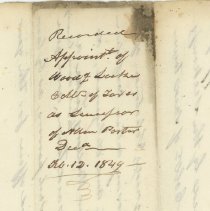 Recorded
Appoint. of
Wood y Locke
Collr of Taxes
as Successor
of Allen Porter
Decd
Feb. 12. 1849